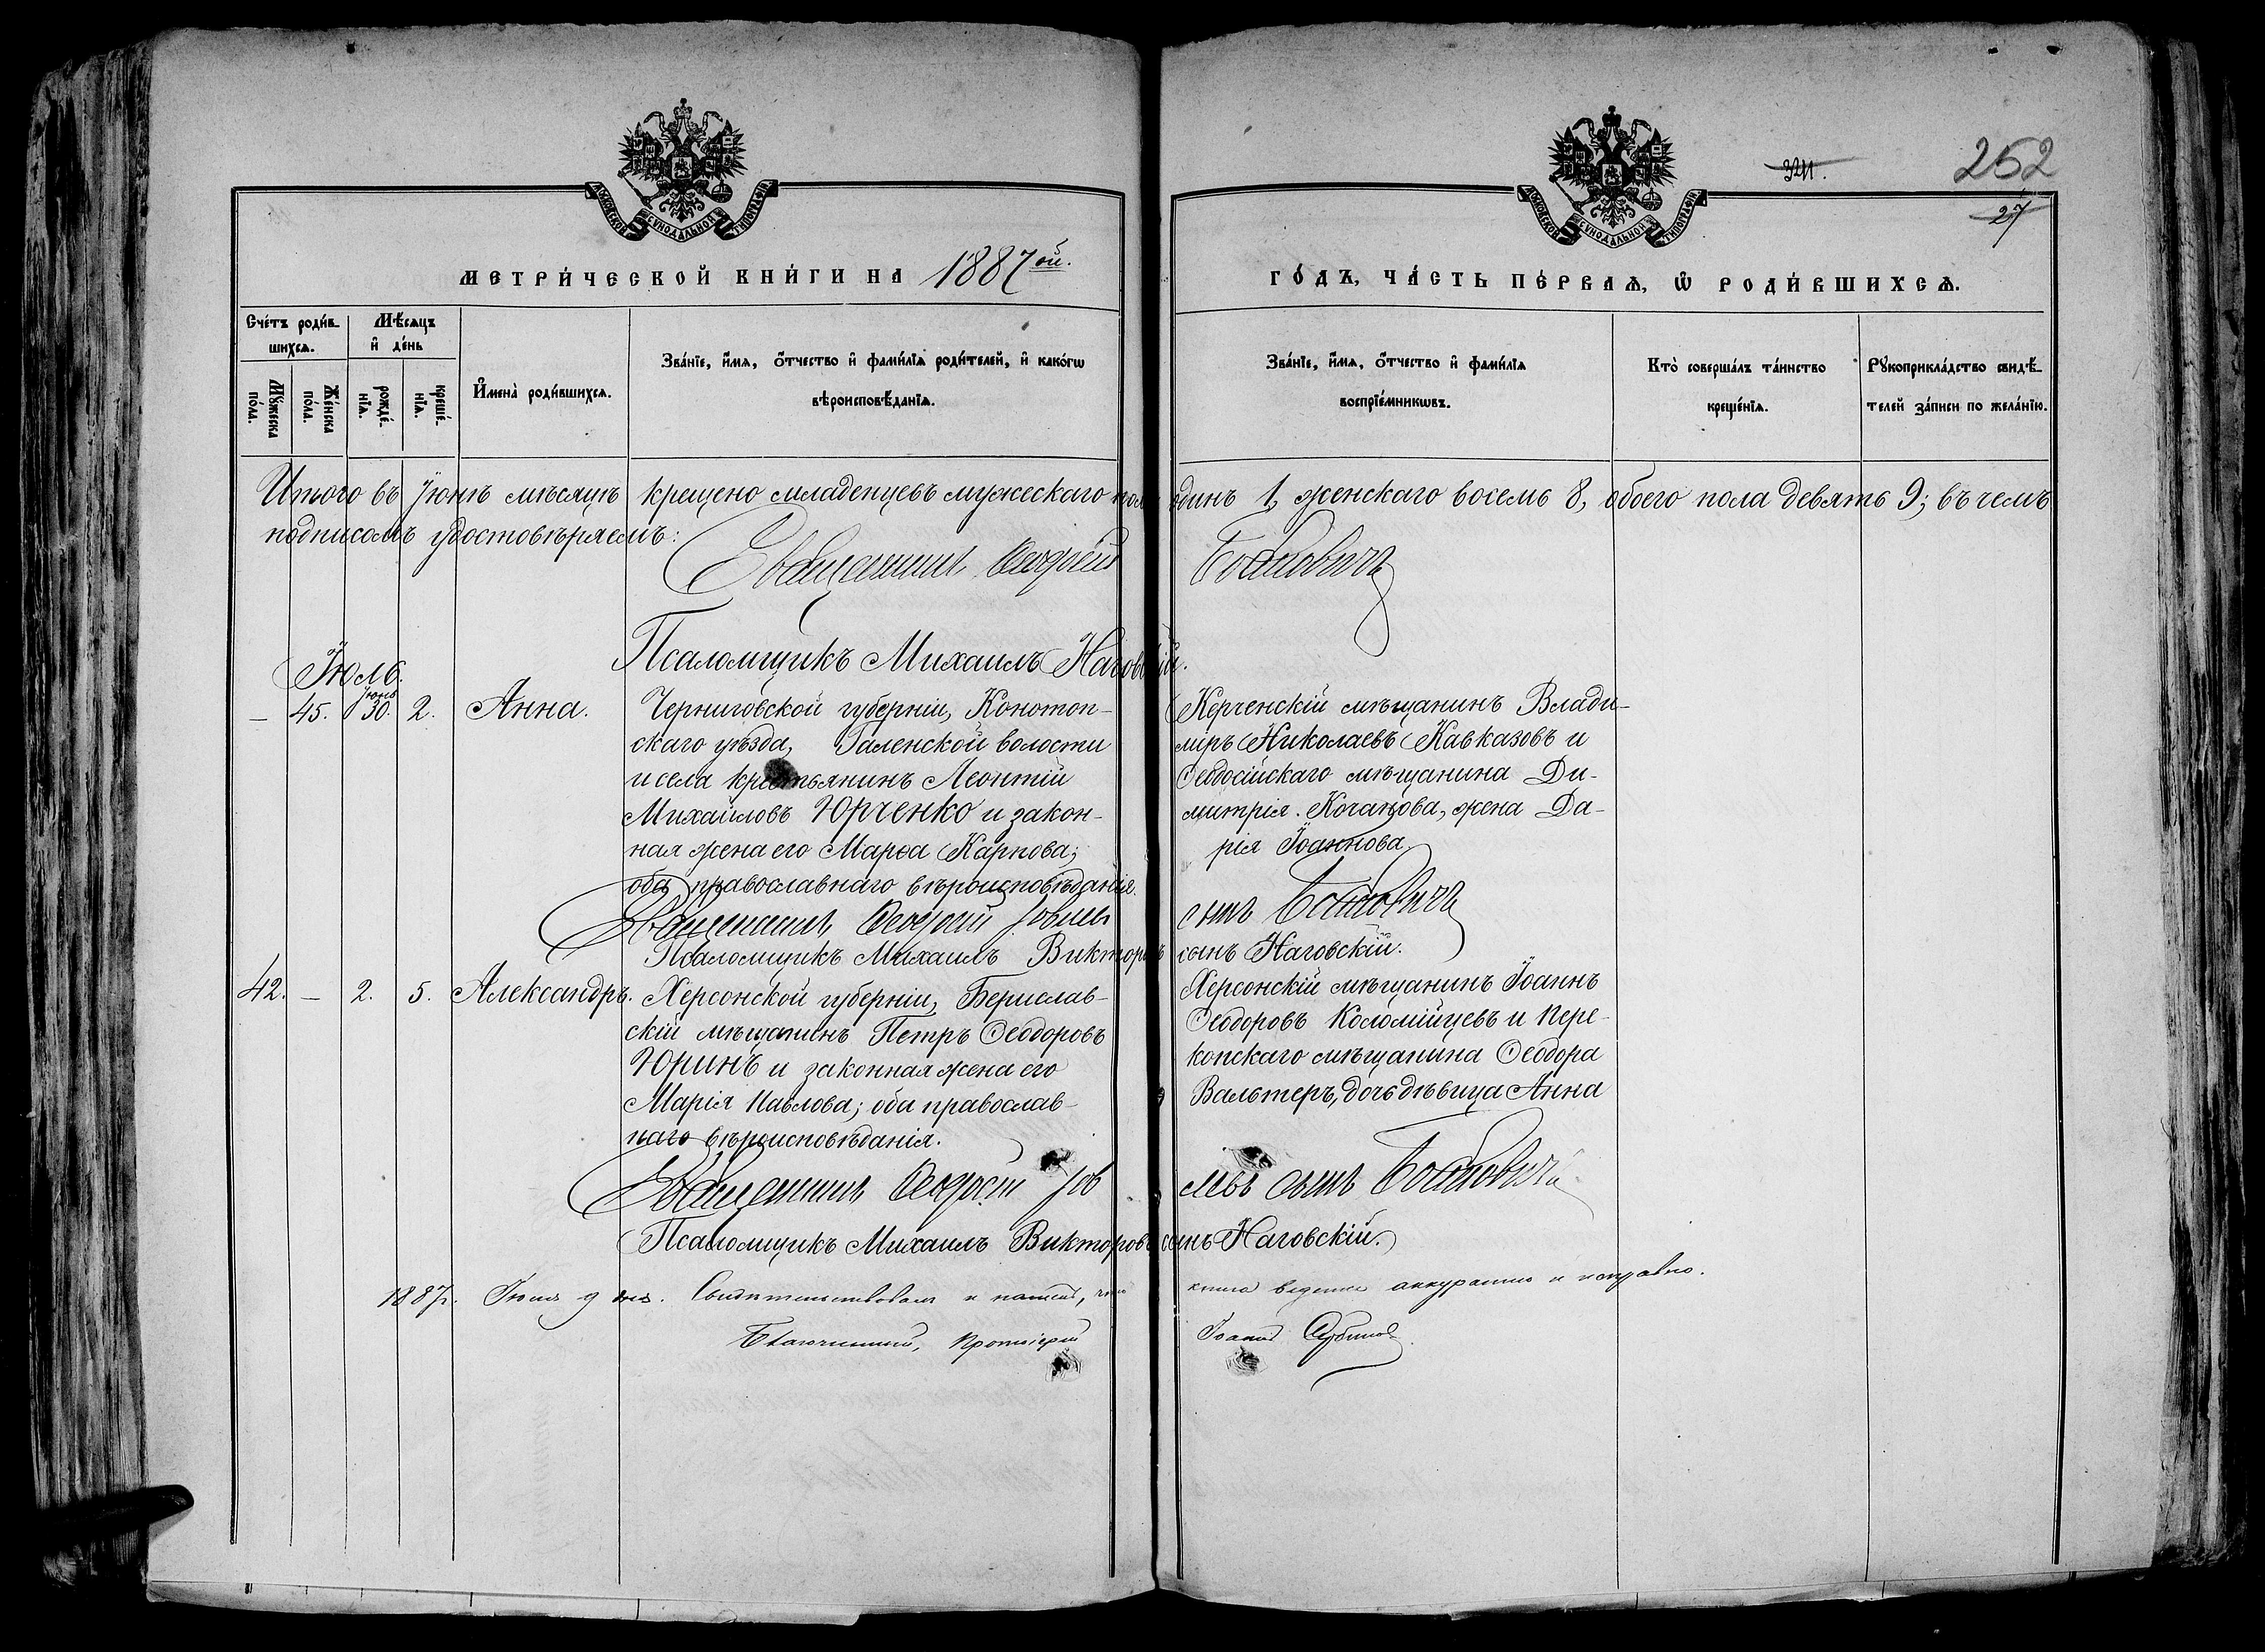 252
27
МОСКОВСКОЙ СѴНОДАЛЬНОЙ ТИПОГРАФІИ
МОСКОВСКОЙ СѴНОДАЛЬНОЙ ТИПОГРАФІИ
МЕТРИ́ЧЕСКОЙ КНИ́ГИ НА 1887ой.
ГО́ДЪ, ЧА́СТЬ ПЕ́РВАѦ, Ѡ҆ РОДИ́ВШИХСѦ.
Сче́тъ роди́в-
шихсѧ.
Мꙋ́жеска по́ла.
Же́нска по́ла.
Мѣ́сѧцъ
и҆ де́нь
рожде́-
нїѧ.
креще́-
нїѧ.
И҆мена̀ роди́вшихсѧ.
Зва́нїе, и҆́мѧ, ѻ҆́тчество и҆ фамѝлїѧ роди́телей, и҆ како́гѡ
вѣроисповѣ́данїѧ.
Зва́нїе, и҆́мѧ, ѻ҆́тчество и҆ фами́лїѧ
воспрїе́мникѡвъ.
Кто̀ соверша́лъ та́инство
креще́нїѧ.
Рꙋкоприкла́дство свидѣ́-
телей за́писи по жела́нїю.
Итого въ Іюнѣ мѣсяцѣ крещено младенцевъ мужескаго пола одинъ 1, женскаго восемь 8, обоего пола девять 9; въ чемъ
подписомъ удостовѣряемъ:
Священникъ Ѳеодосій
Псаломщикъ Михаилъ Наговскій.
Іюль.
— 45. Іюня 30. 2. Анна. Черниговской губерніи, Конотоп-
скаго уѣзда, Галенской волости
и села крестьянинъ Леонтій
Михайловъ Юрченко и закон-
ная жена его Марѳа Карпова;
оба православнаго вѣроисповѣданія.
Керченскій мѣщанинъ Влади-
міръ Николаевъ Кавказовъ и
Ѳеодосійскаго мѣщанина Ди-
митрія Кочанова, жена Да-
рія Іоаннова.
Священникъ Ѳеодосій Іовлевъ сынъ
Псаломщикъ Михаилъ Викторовъ сынъ Наговскій.
42. — 2. 5. Александръ. Херсонской губерніи, Берислав-
скій мѣщанинъ Петръ Ѳеодоровъ
Юринъ и законная жена его
Марія Павлова; оба православ-
наго вѣроисповѣданія.
Херсонскій мѣщанинъ Іоаннъ
Ѳеодоровъ Коломійцевъ и Пере-
копскаго мѣщанина Ѳеодора
Вальтеръ, дочь дѣвица Анна
Священникъ Ѳеодосій Іовлевъ сынъ
Псаломщикъ Михаилъ Викторовъ сынъ Наговскій.
1887г. Іюля 9 дня. Свидѣтельствовалъ и нашелъ, что книга ведется аккуратно и исправно.
Благочинный, Протоіерей Іоаннъ